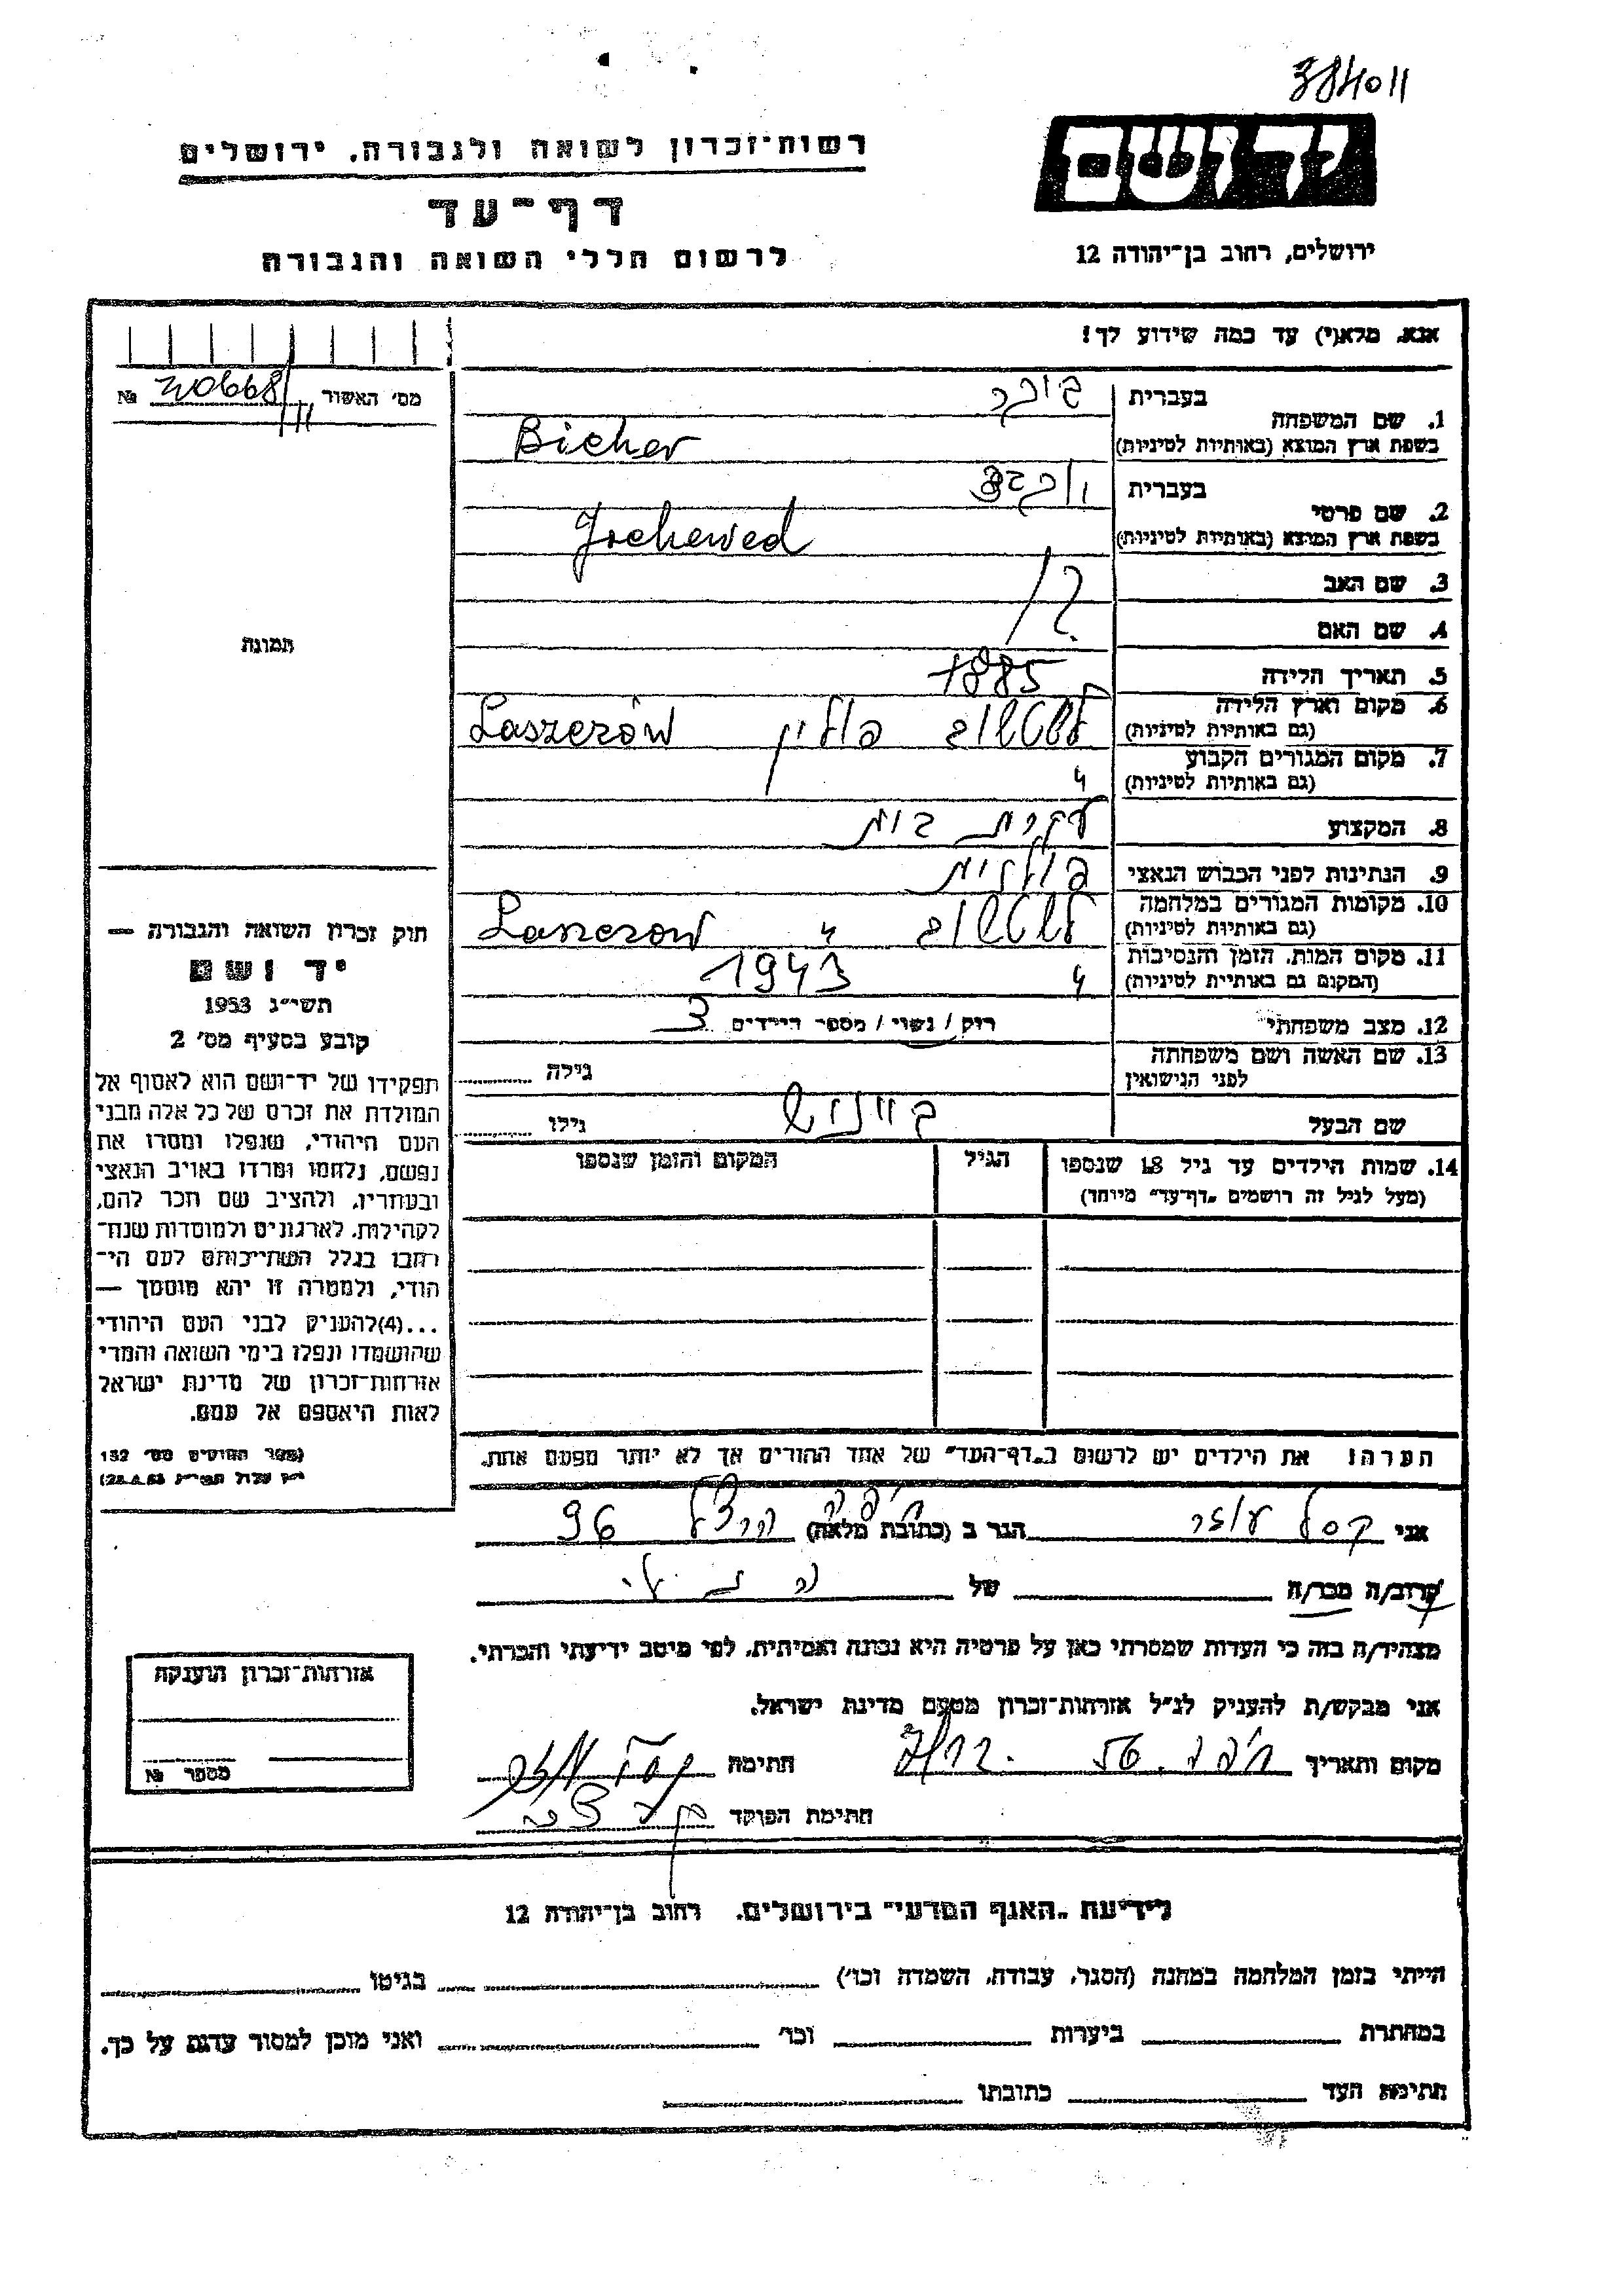 384011
רשות־זכרון לשואה ולגבורה, ירושלים
יד ושם
דף־עד
לרשום חללי השואה והגבורה
ירושלים, רחוב בן־יהודה 12
אנא, מלא(י) עד כמה שידוע לך!
מס׳ האשור № 206681/III
1. שם המשפחה בעברית ביכר
בשפת ארץ המוצא (באותיות לטיניות) Bicher
2. שם פרטי בעברית יוכבד
בשפת ארץ המוצא (באותיות לטיניות) Jochewed
3. שם האב
4. שם האם ?
תמונה
5. תאריך הלידה 1885
6. מקום וארץ הלידה
(גם באותיות לטיניות) פולין Laszczów
7. מקום המגורים הקבוע
(גם באותיות לטיניות) "
8. המקצוע עקרת בית
9. הנתינות לפני הכבוש הנאצי פולנית
10. מקומות המגורים במלחמה
(גם באותיות לטיניות) " Laszczow
11. מקום המות, הזמן והנסיבות
(המקום גם באותיות לטיניות) " 1943
12. מצב משפחתי רוק / נשוי / מספר הילדים 3
13. שם האשה ושם משפחתה
לפני הנישואין גילה
שם הבעל גילו
14. שמות הילדים עד גיל 18 שנספו הגיל המקום והזמן שנספו
(מעל לגיל זה רושמים „דף־עד״ מיוחד)
חוק זכרון השואה והגבורה —
יד ושם
תשי״ג 1953
קובע בסעיף מס׳ 2
תפקידו של יד־ושם הוא לאסוף אל
המולדת את זכרם של כל אלה מבני
העם היהודי, שנפלו ומסרו את
נפשם, נלחמו ומרדו באויב הנאצי
ובעוזריו, ולהציב שם וזכר להם,
לקהילות, לארגונים ולמוסדות שנח־
רבו בגלל השתייכותם לעם הי־
הודי, ולמטרה זו יהא מוסמך —
...(4)להעניק לבני העם היהודי
שהושמדו ונפלו בימי השואה והמרי
אזרחות־זכרון של מדינת ישראל
לאות היאספם אל עמם.
(ספר החוקים מס׳ 132
הערה: את הילדים יש לרשום ב„דף־העד״ של אחד ההורים אך לא יותר מפעם אחת.
אני קסל עוזר הגר ב (כתובת מלאה) חיפה הרצל 96
קרוב/ה מכר/ה של
מצהיר/ה בזה כי העדות שמסרתי כאן על פרטיה היא נכונה ואמיתית, לפי מיטב ידיעתי והכרתי.
אני מבקש/ת להעניק לנ״ל אזרחות־זכרון מטעם מדינת ישראל.
מקום ותאריך חיפה חתימה
חתימת הפוקד
אזרחות־זכרון הוענקה
מספר №
לידיעת „האגף המדעי״ בירושלים, רחוב בן־יהודה 12
הייתי בזמן המלחמה במחנה (הסגר, עבודה, השמדה וכו׳) בגיטו
במחתרת ביערות וכו׳ ואני מוכן למסור עדות על כך.
חתימת העד כתובתו